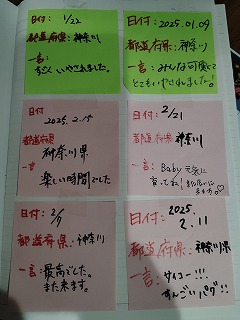 日付: 1/22
都道府県: 神奈川
一言:
すごくいやされました。
日付: 2025.01.09
都道府県: 神奈川
一言: みんな可愛くて
とてもいやされました!
日付:
2025. 2.15
都道府県
神奈川県
一言
楽しい時間でした
日付: 2/21
都道府県: 神奈川
一言: Baby元気に
育ってね!
日付:
2/7
都道府県: 神奈川
一言: 最高でした。
また来ます。
日付: 2025.
2.11
都道府県: 神奈川県
一言: サイコー!!!
すんごいパグ!!